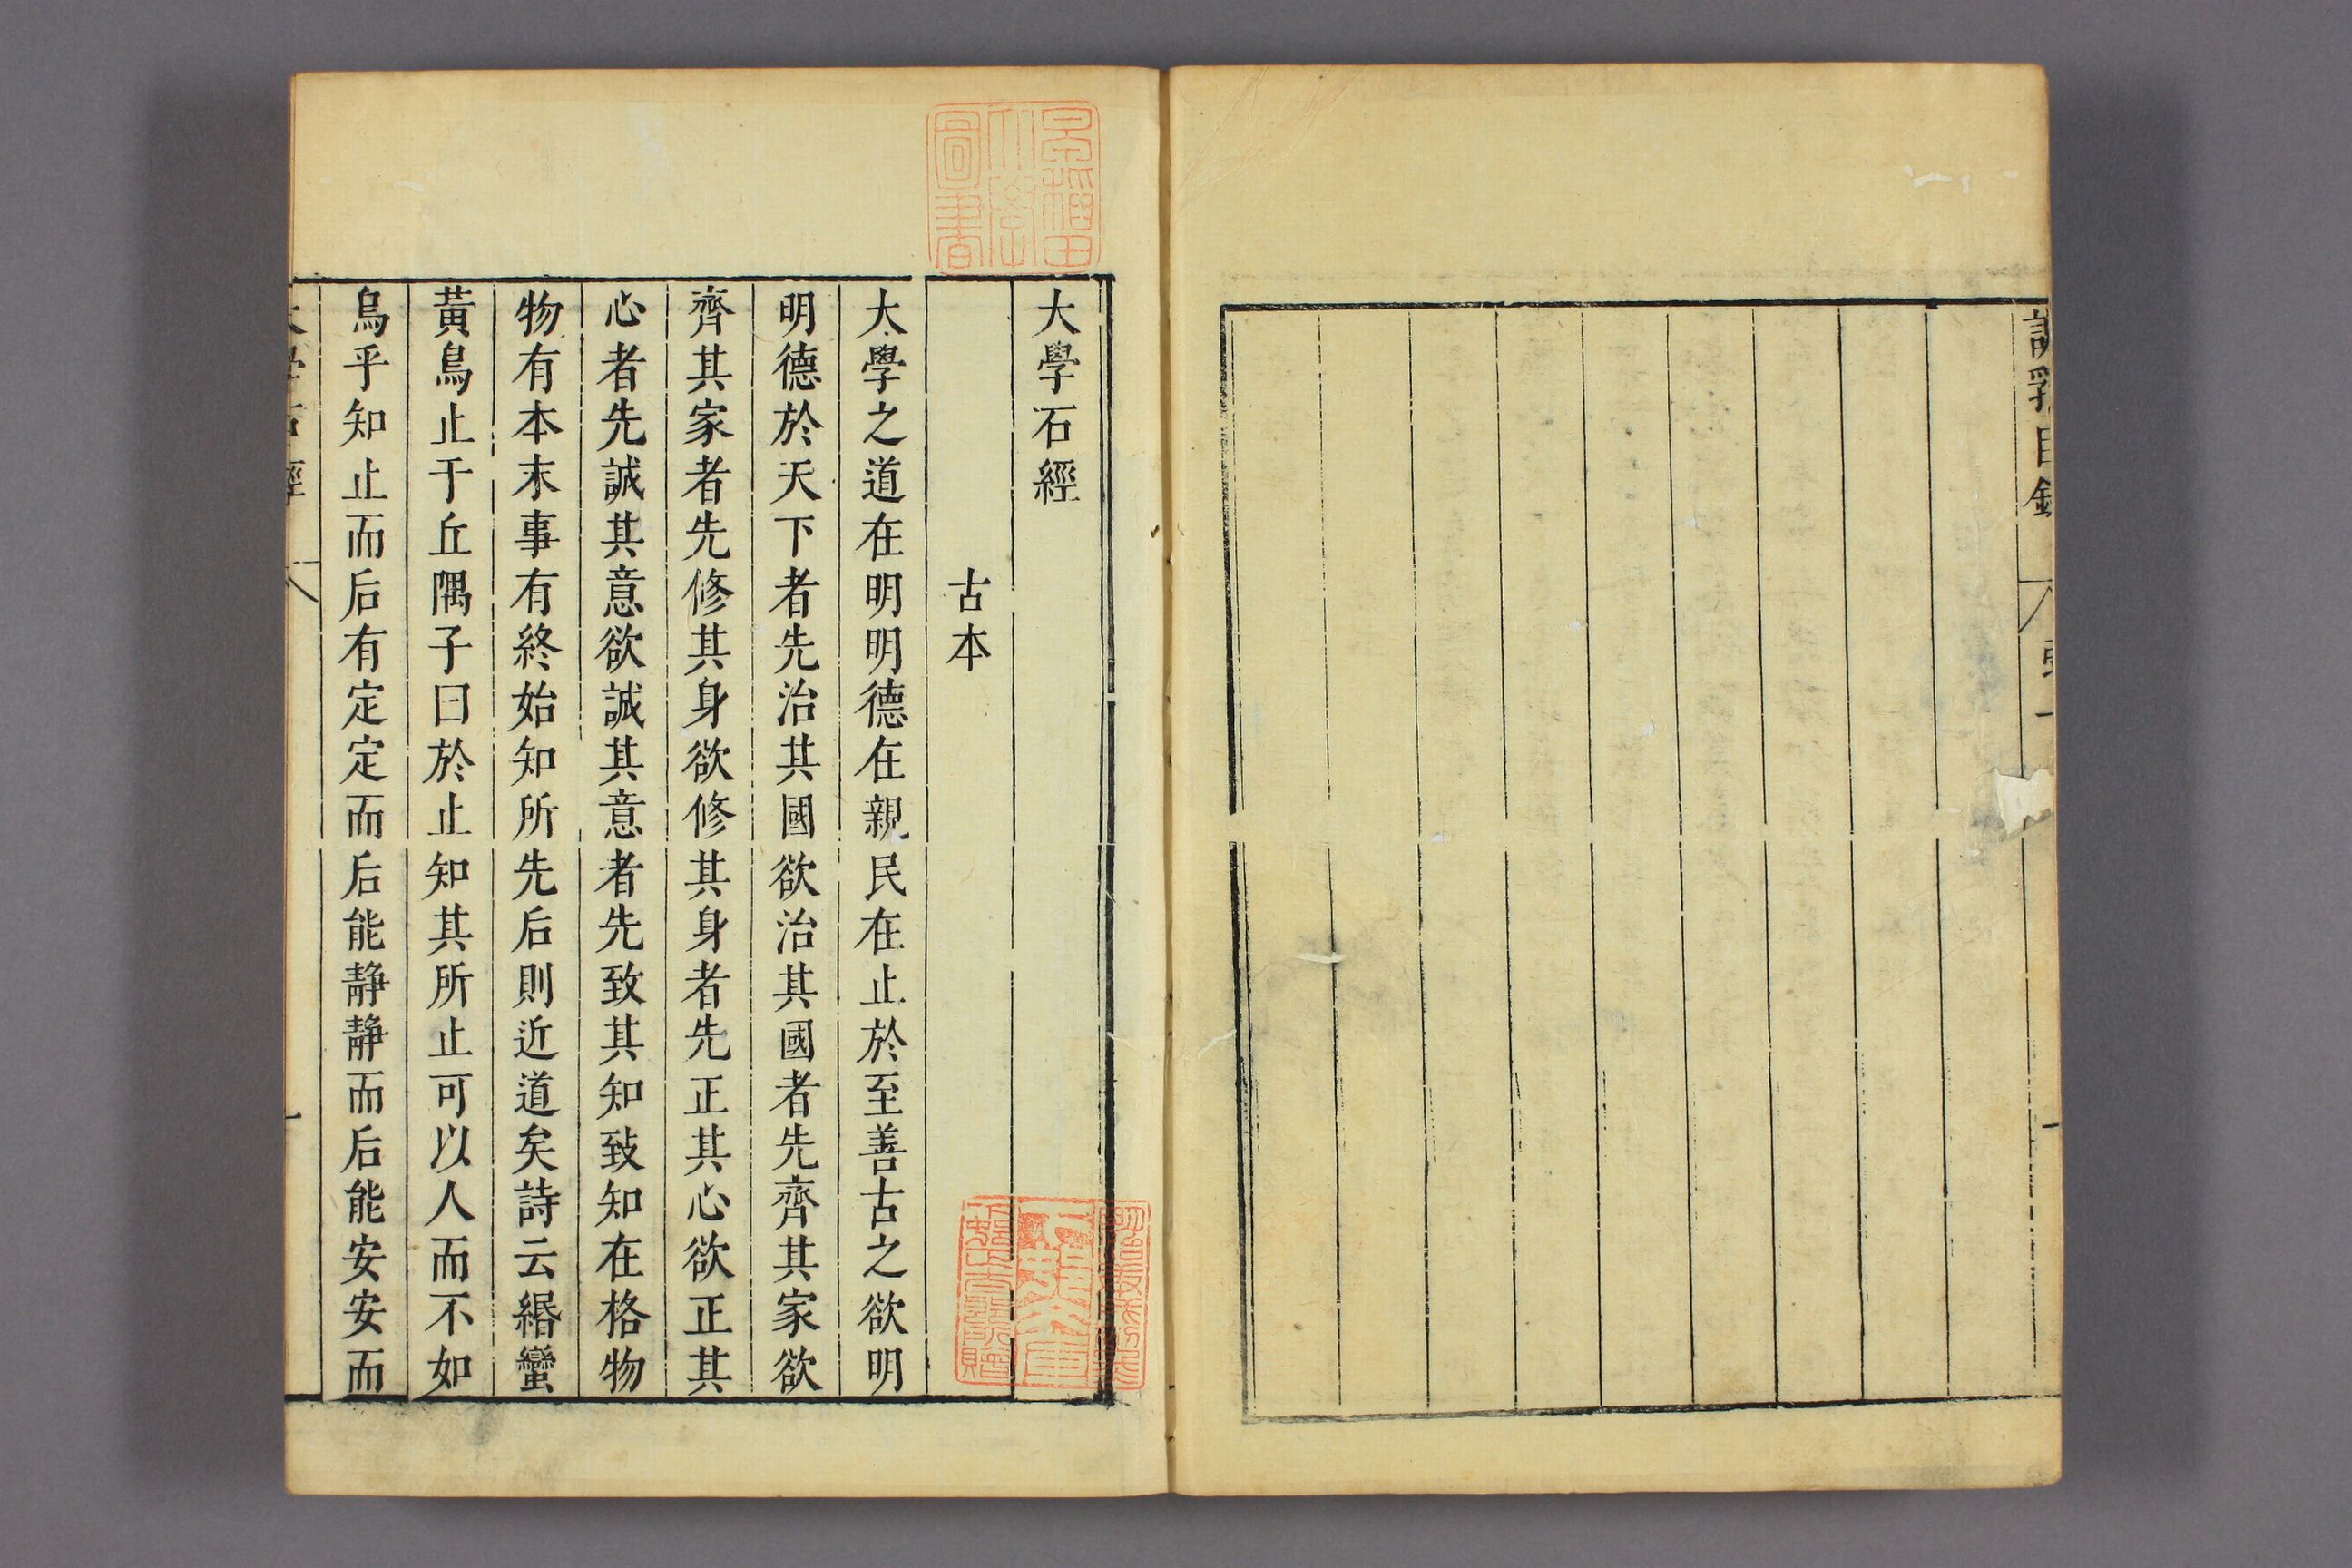 說郛目錄
大學石經
古本
大學之道在明明德在親民在止於至善古之欲明
明德於天下者先治其國欲治其國者先齊其家欲
齊其家者先修其身欲修其身者先正其心欲正其
心者先誠其意欲誠其意者先致其知致知在格物
物有本末事有終始知所先后則近道矣詩云緡蠻
黃鳥止于丘隅子曰於止知其所止可以人而不如
鳥乎知止而后有定定而后能靜靜而后能安安而
大學石經
一
早稻田大學圖書